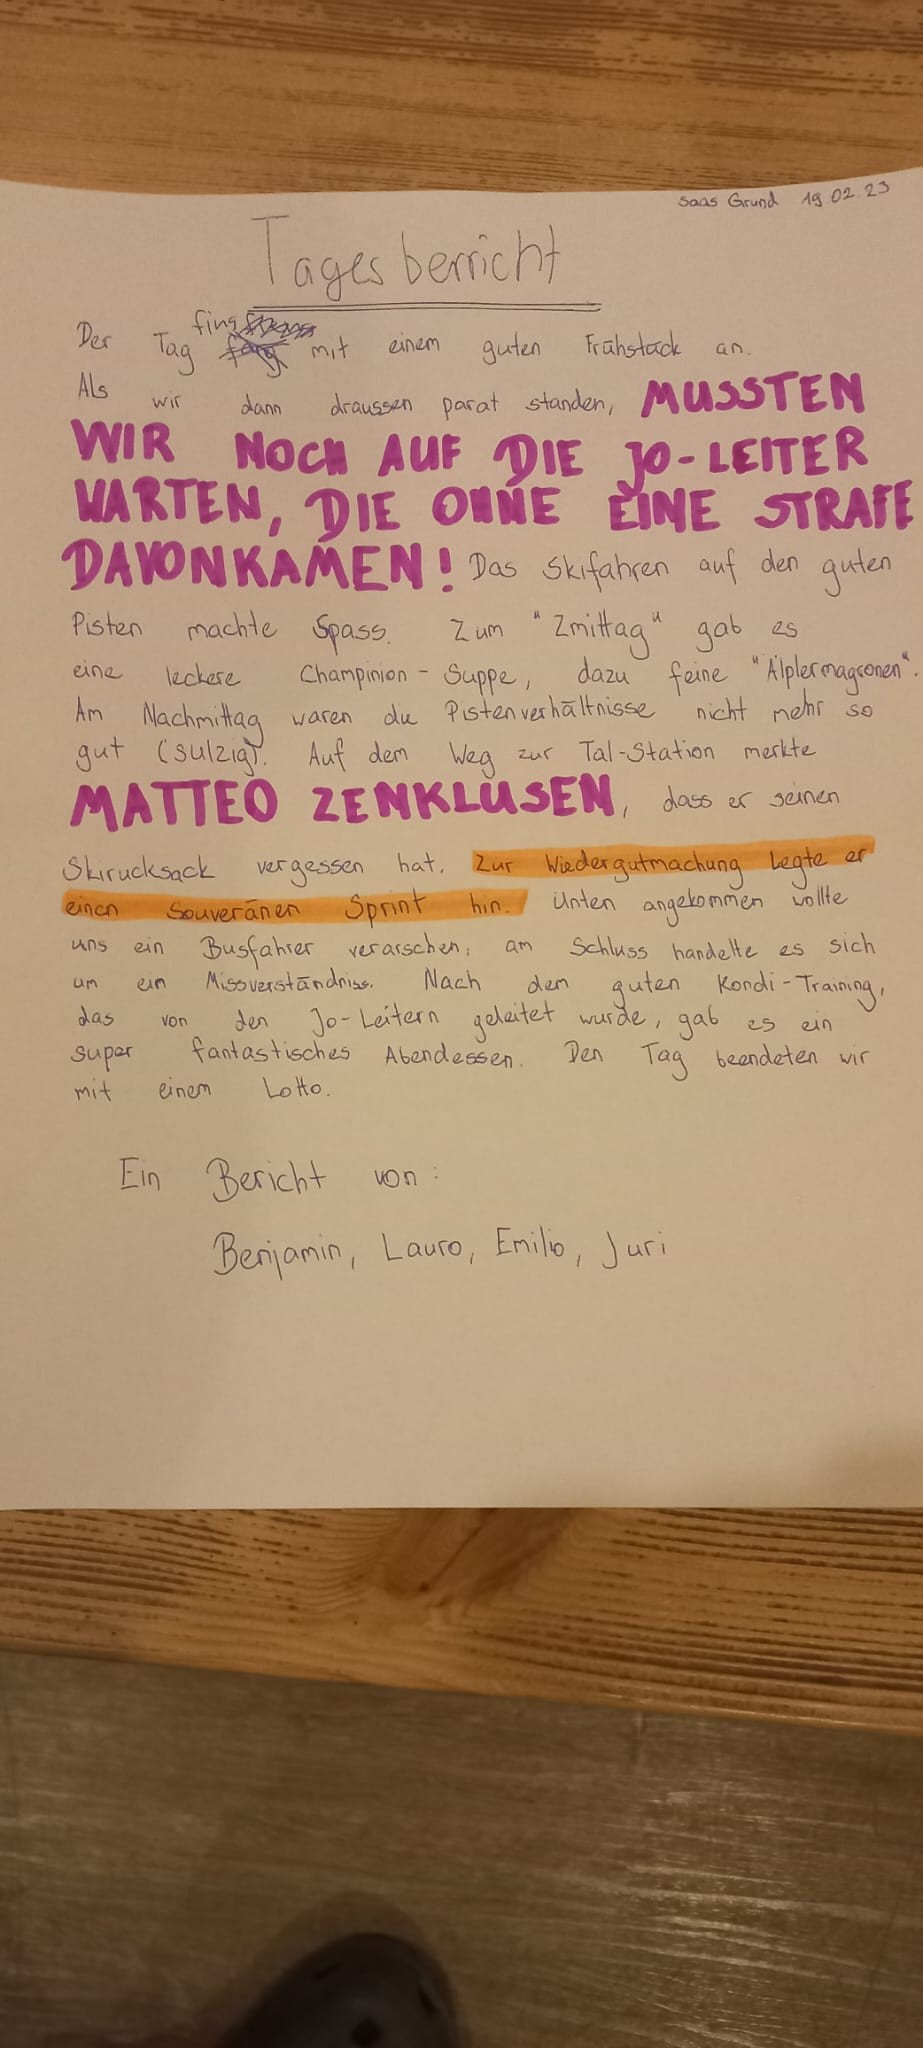 Saas Grund 19.02.23
Tagesberricht
Der Tag fing mit einem guten Frühstück an.
Als wir dann draussen parat standen, MUSSTEN
WIR NOCH AUF DIE JO-LEITER
WARTEN, DIE OHNE EINE STRAFE
DAVONKAMEN! Das Skifahren auf den guten
Pisten machte Spass. Zum "Zmittag" gab es
eine leckere Champinion-Suppe, dazu feine "Älplermagronen".
Am Nachmittag waren die Pistenverhältnisse nicht mehr so
gut (sulzig). Auf dem Weg zur Tal-Station merkte
MATTEO ZENKLUSEN, dass er seinen
Skirucksack vergessen hat. Zur Wiedergutmachung legte er
einen souveränen Sprint hin. Unten angekommen wollte
uns ein Busfahrer verarschen, am Schluss handelte es sich
um ein Missverständniss. Nach dem guten Kondi-Training,
das von den Jo-Leitern geleitet wurde, gab es ein
super fantastisches Abendessen. Den Tag beendeten wir
mit einem Lotto.
Ein Bericht von:
Benjamin, Lauro, Emilio, Juri